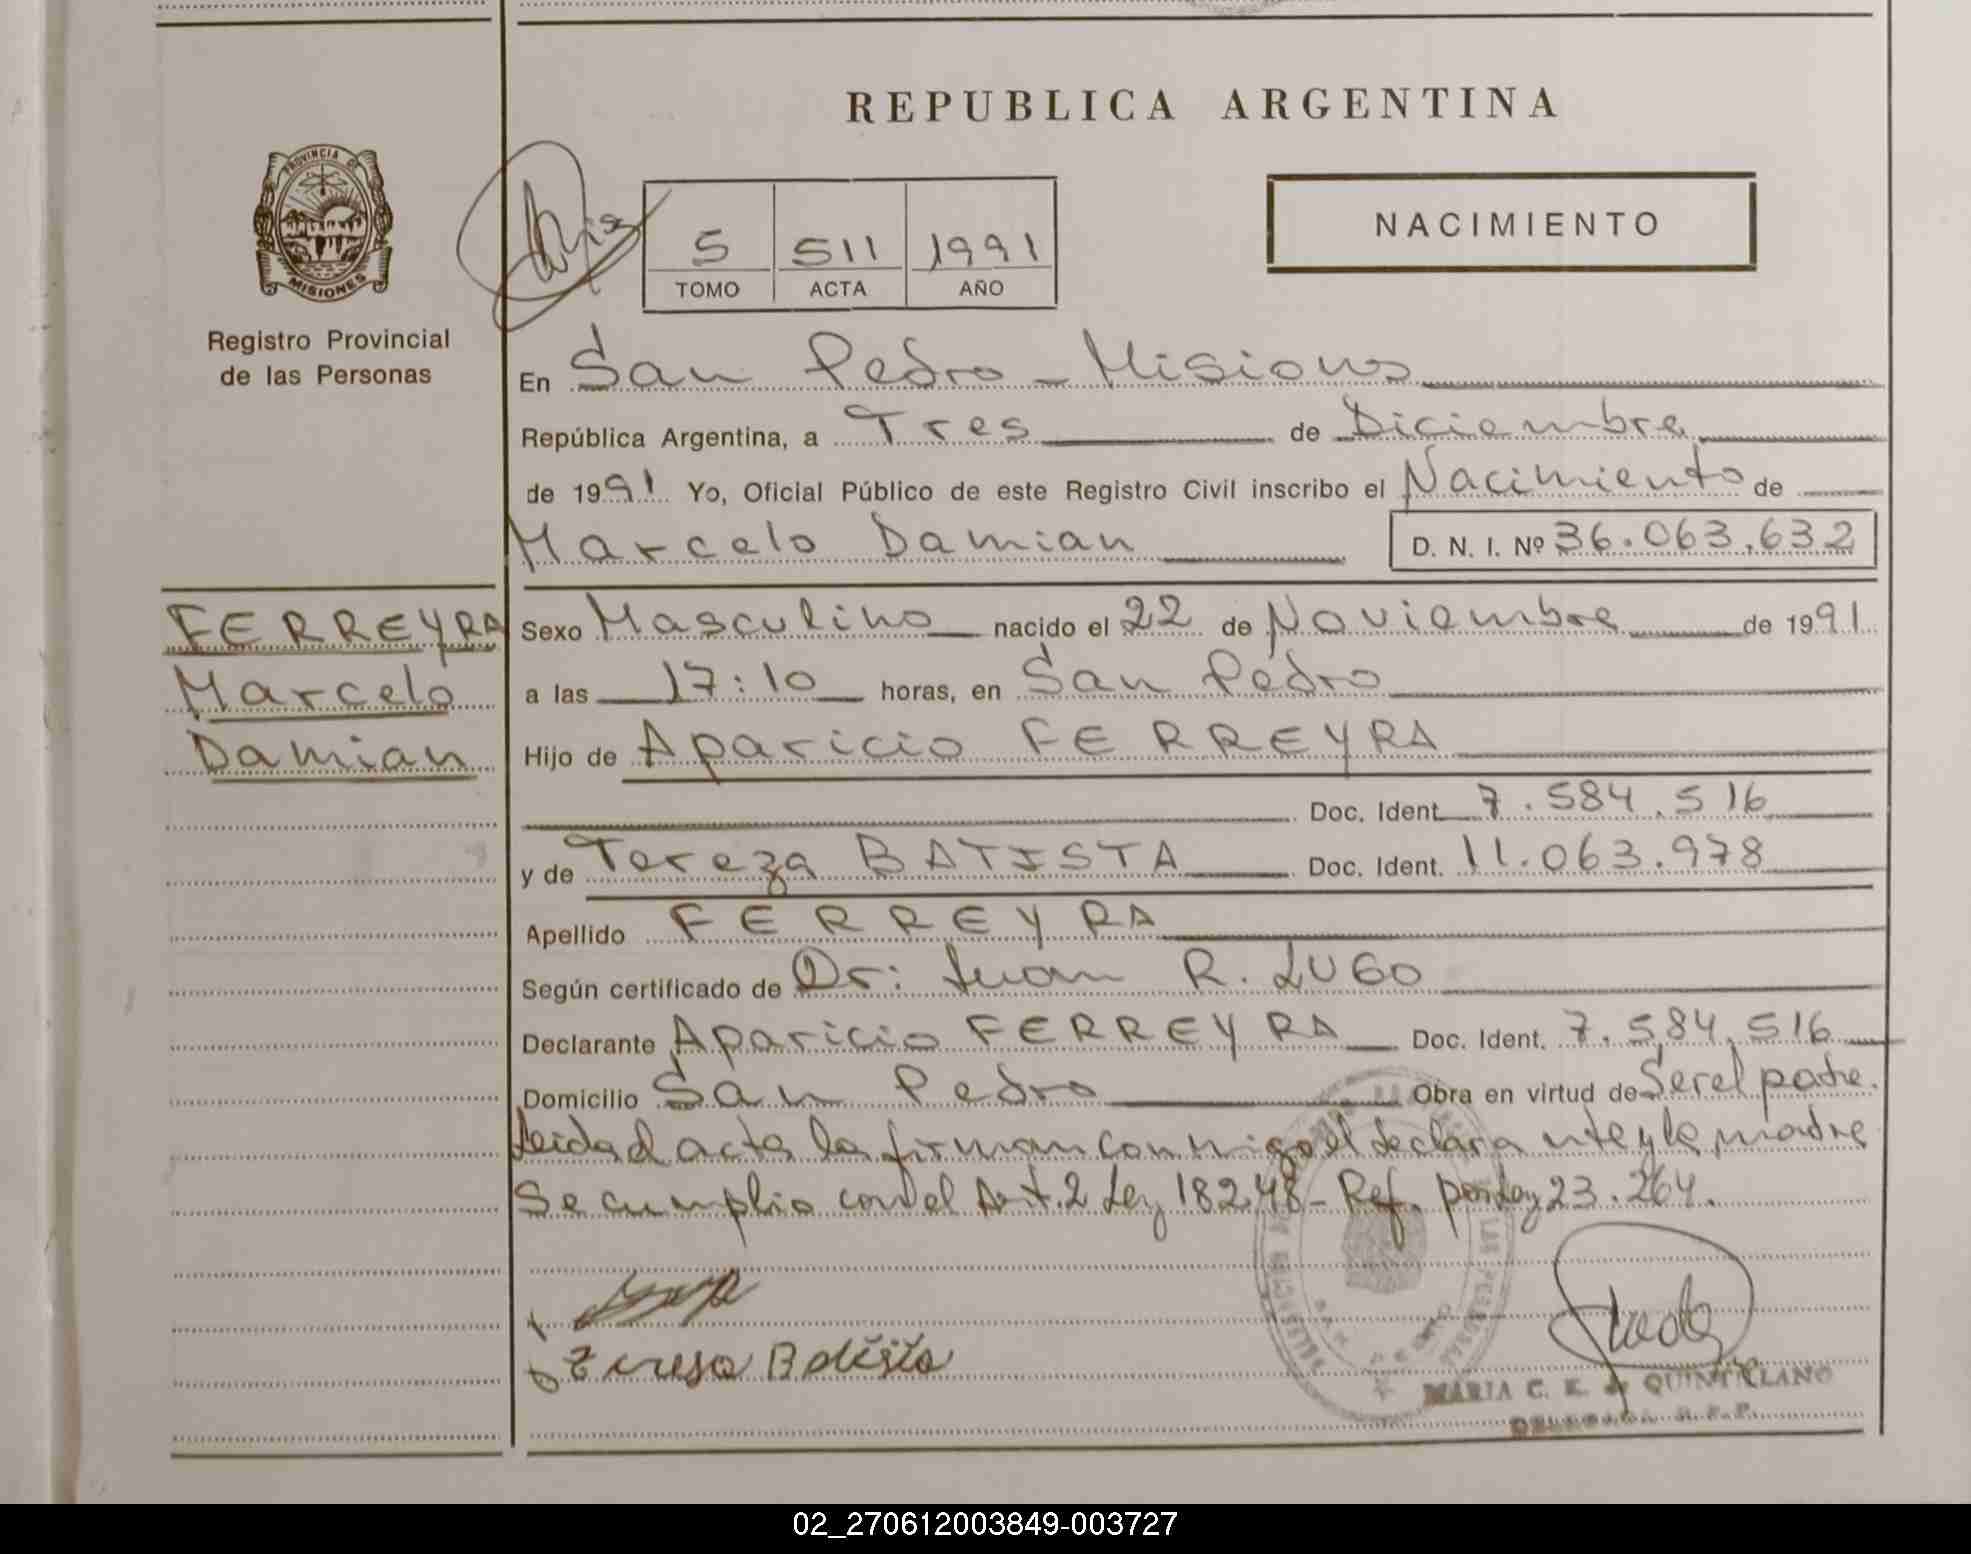 REPUBLICA ARGENTINA
PROVINCIA DE
MISIONES
Registro Provincial
de las Personas
5 511 1991
TOMO ACTA AÑO
NACIMIENTO
En San Pedro - Misiones
República Argentina, a Tres de Diciembre
de 1991 Yo, Oficial Público de este Registro Civil inscribo el Nacimiento de
Marcelo Damian D. N. I. Nº 36.063.632
FERREYRA
Marcelo
Damian
Sexo Masculino nacido el 22 de Noviembre de 1991
a las 17:10 horas, en San Pedro
Hijo de Aparicio FERREYRA
Doc. Ident. 7.584.516
y de Tereza BATISTA Doc. Ident. 11.063.978
Apellido FERREYRA
Según certificado de Dr: Juan R. LUGO
Declarante Aparicio FERREYRA Doc. Ident. 7.584.516
Domicilio San Pedro Obra en virtud de Ser el padre.
Leida el acta la firman conmigo el declarante y la madre
Se cumplio con el Art. 2 Ley 18248 - Ref. por Ley 23.264.
Teresa Batista
MARIA C. K. de QUINTILANO
DELEGADA R.P.P.
02_270612003849-003727